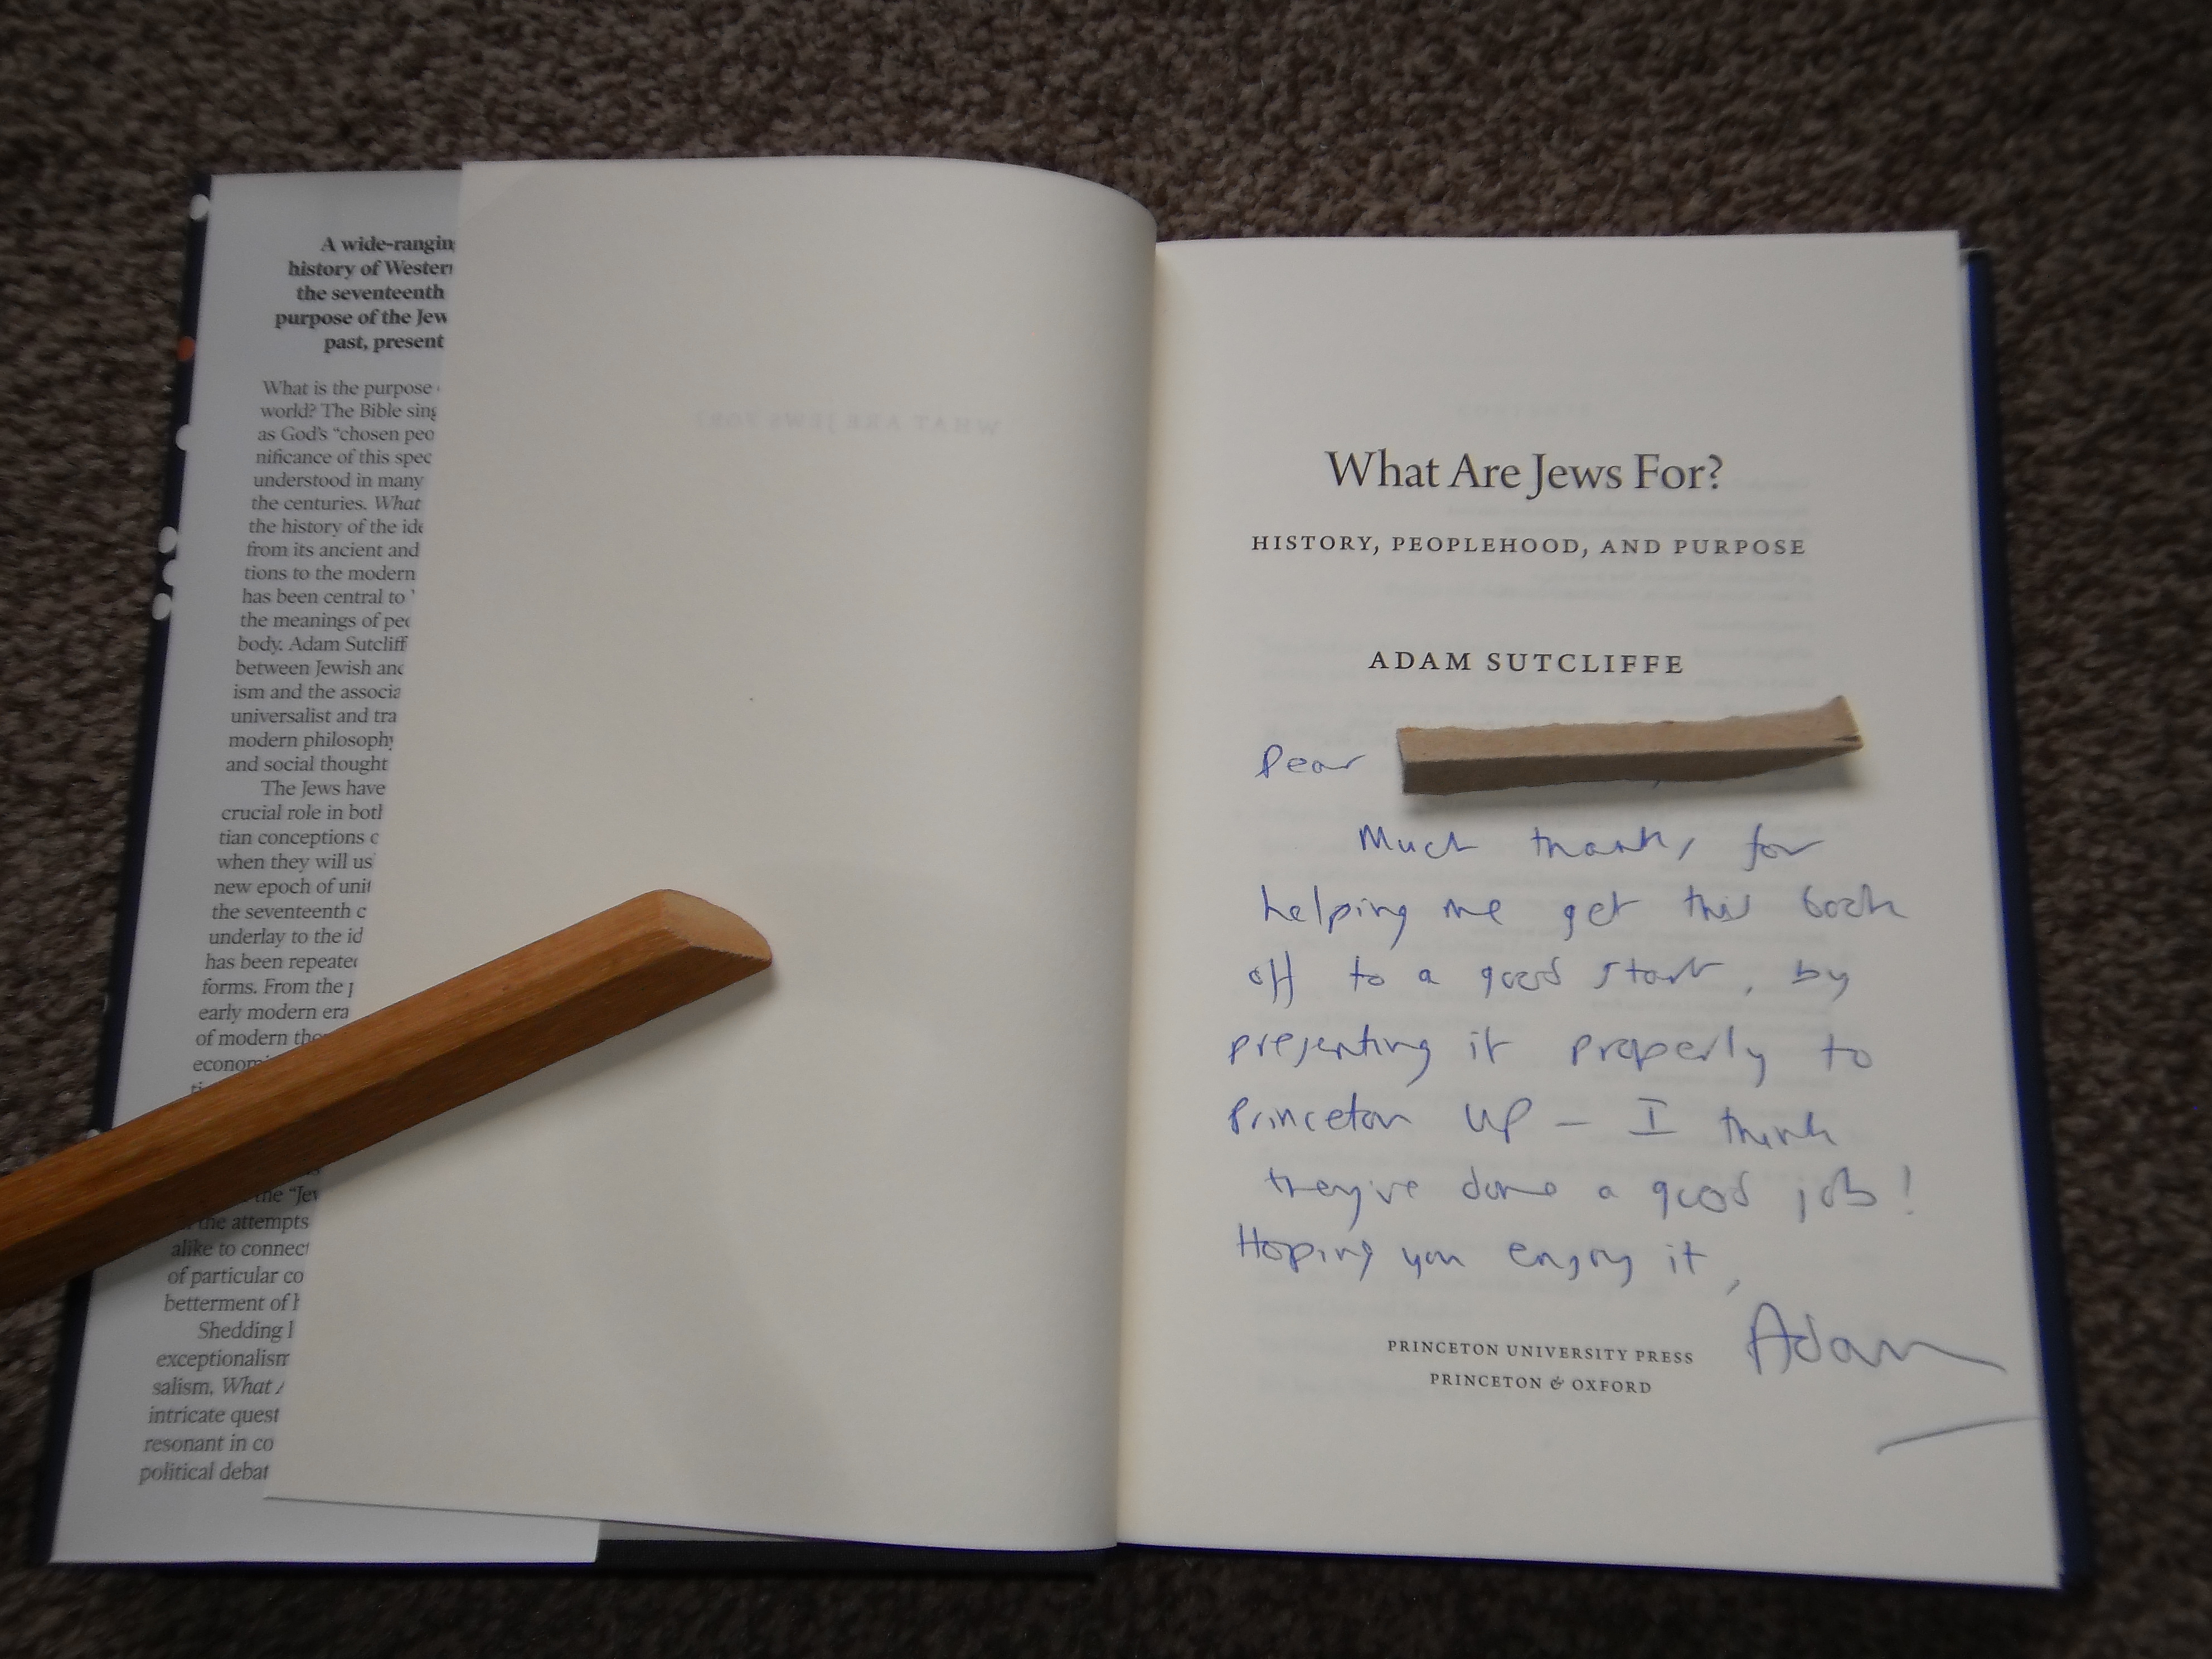 A wide-rangin
history of Western
the seventeenth
purpose of the Jew
past, present
What is the purpose
world? The Bible sing
as God's “chosen peo
nificance of this spec
understood in many
the centuries. What
the history of the ide
from its ancient and
tions to the modern
has been central to
the meanings of peo
body. Adam Sutcliff
between Jewish and
ism and the associa
universalist and tra
modern philosophy
and social thought
The Jews have
crucial role in both
tian conceptions o
when they will us
new epoch of unit
the seventeenth c
underlay to the id
has been repeated
forms. From the
early modern era
of modern tho
econom
the “Jew
the attempts
alike to connect
of particular co
betterment of h
Shedding l
exceptionalism
salism, What A
intricate quest
resonant in co
political debat
WHAT ARE JEWS FOR?
What Are Jews For?
HISTORY, PEOPLEHOOD, AND PURPOSE
ADAM SUTCLIFFE
Dear
Much thanks for
helping me get this book
off to a good start, by
presenting it properly to
Princeton UP – I think
they've done a good job!
Hoping you enjoy it,
Adam
PRINCETON UNIVERSITY PRESS
PRINCETON & OXFORD